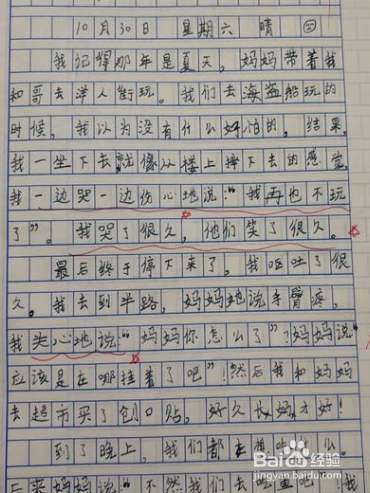 10月30日 星期六 晴
我记得那年是夏天，妈妈带着我
和哥去洋人街玩。我们去海盗船玩的
时候，我以为没有什么好怕的，结果
我一坐下去就像从楼上摔下去的感觉
我一边哭一边伤心地说：“我再也不玩
了”。我哭了很久，他们笑了很久。
最后终于停下来了，我呕吐了很
久。我去到半路，妈妈她说手臂疼，
我关心地说：“妈妈你怎么了”？妈妈说“
应该是在哪挂着了吧”！然后我和妈妈
去超市买了创口贴，好久长妈才好！
到了晚上，我们都去想吃什么
后来妈妈说“不然我们去吃
Baidu百度经验